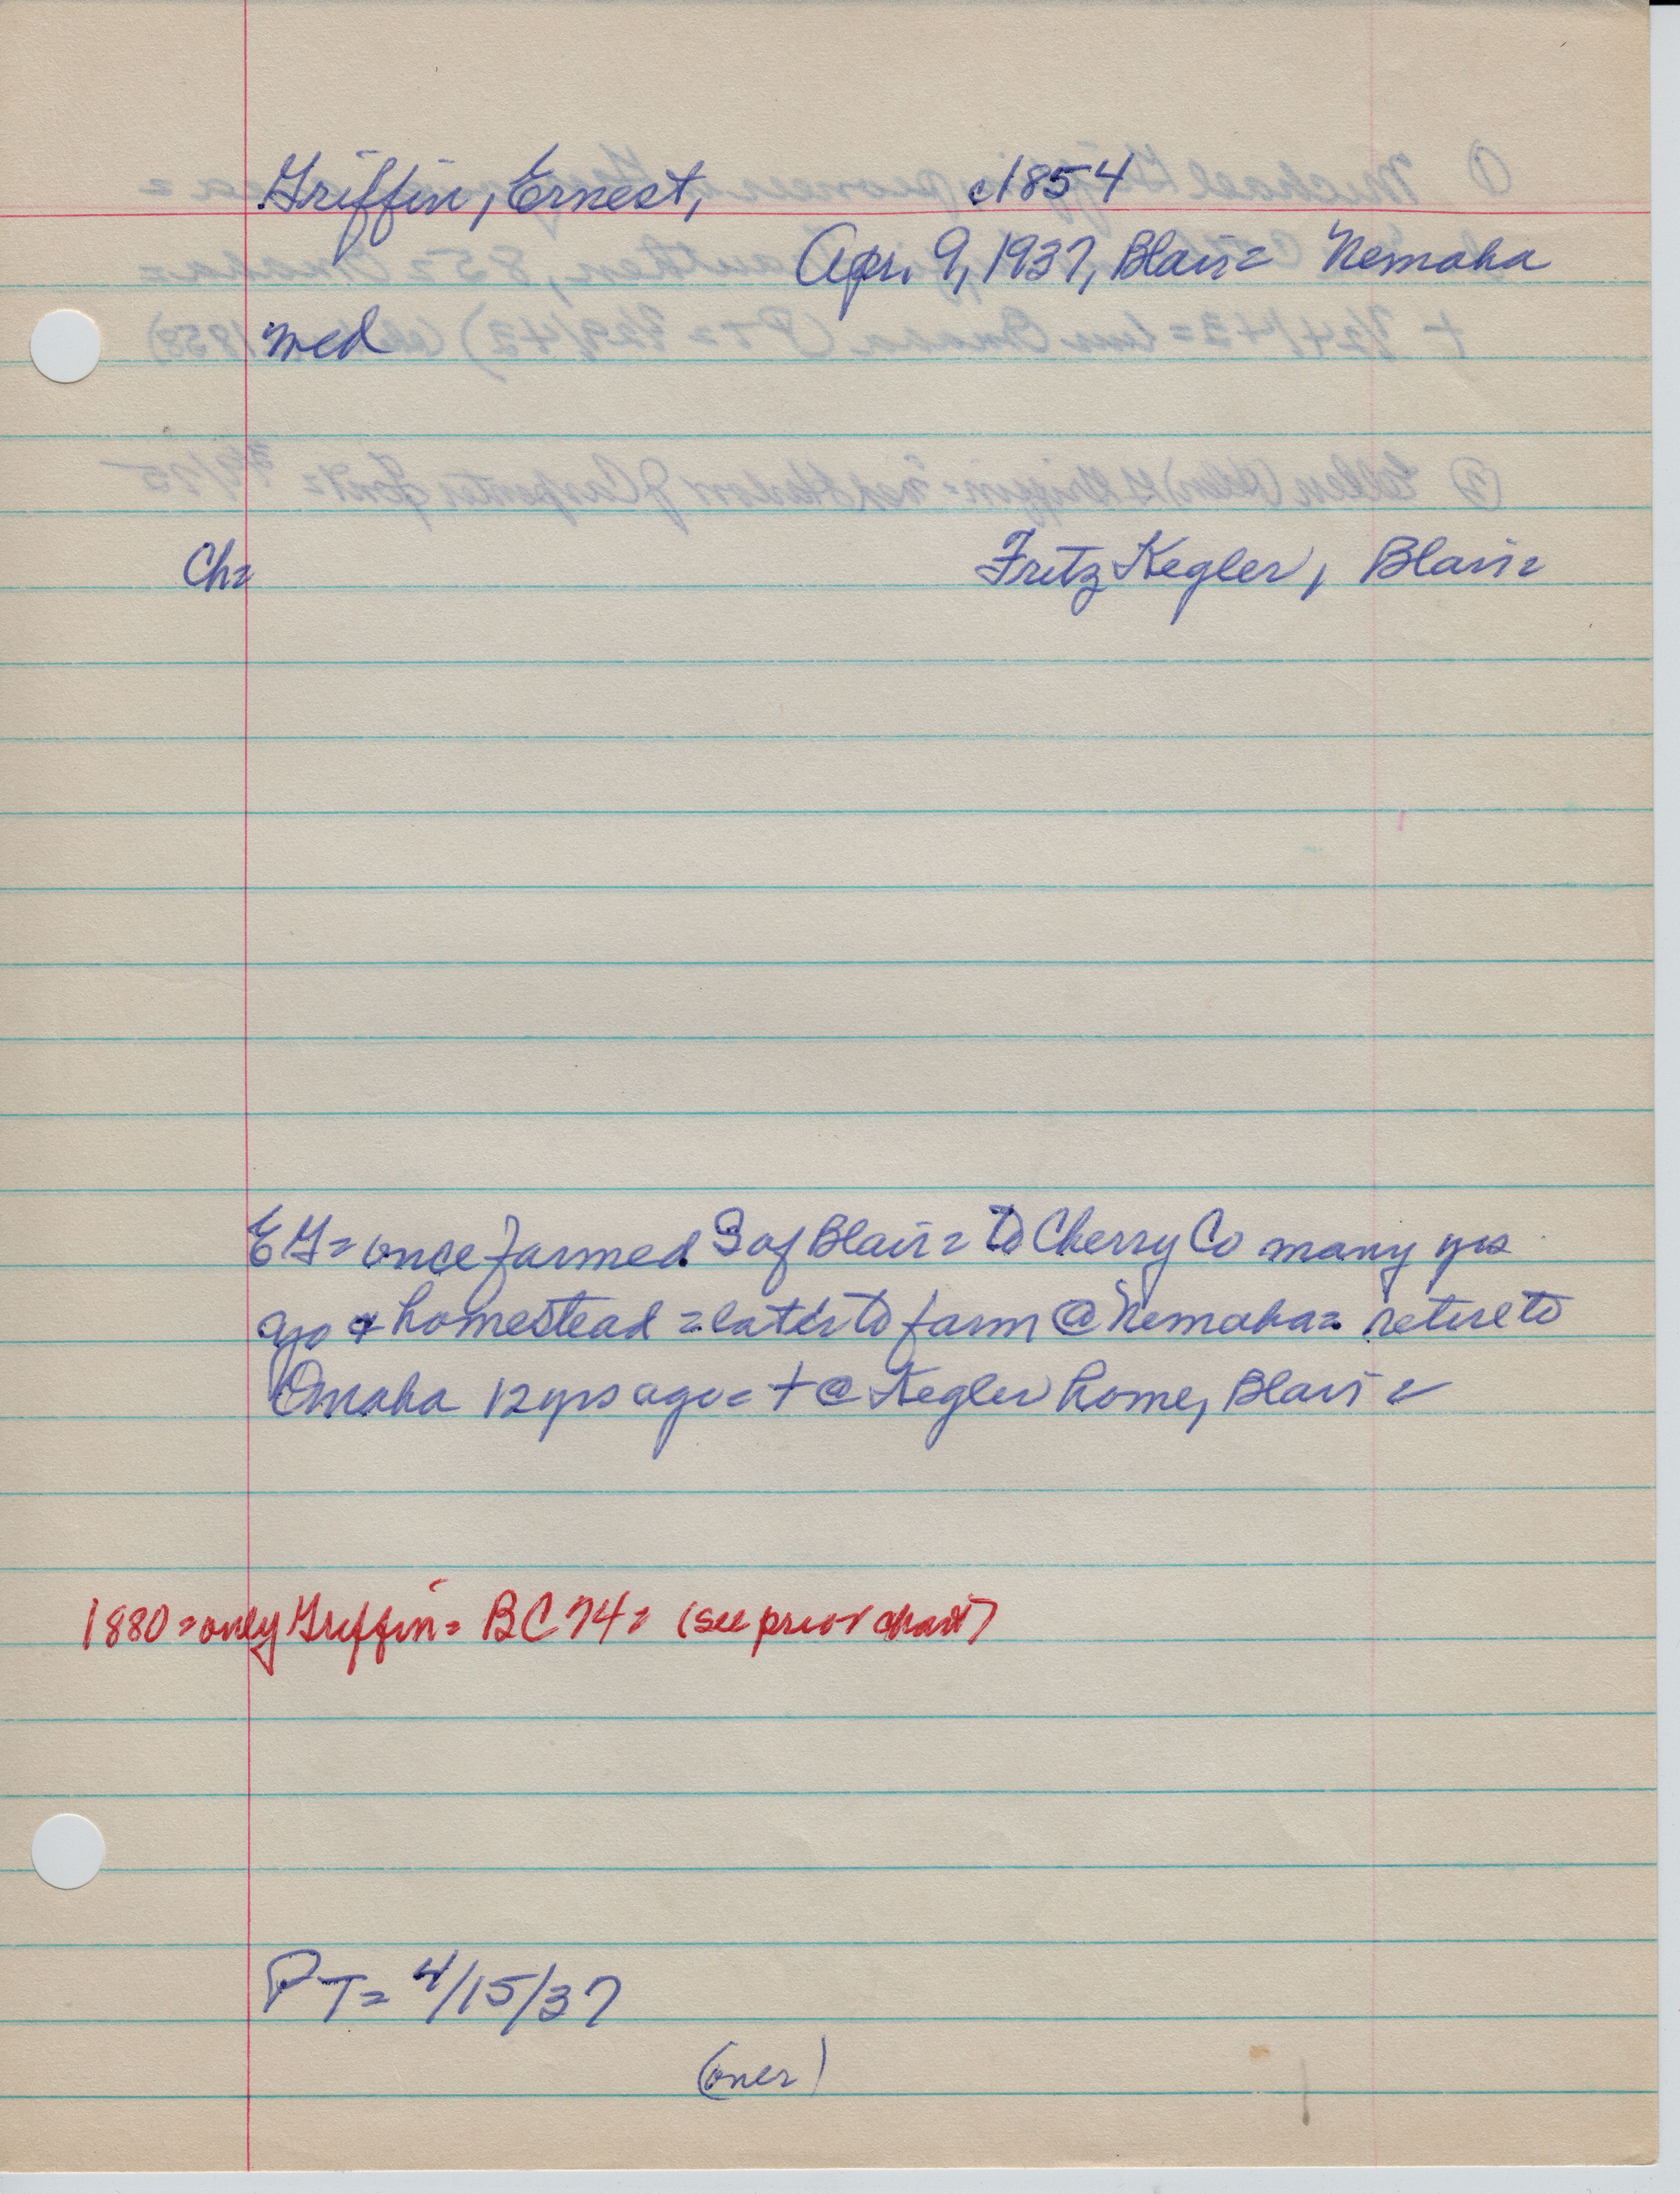 Griffin, Ernest, c1854
Apr. 9, 1937, Blair= Nemaha
med
Ch= Fritz Kegler, Blair=
EG= once farmed S of Blair= to Cherry Co many yrs
ago & homestead = later to farm @ Nemaha= retire to
Omaha 12 yrs ago= † @ Kegler home, Blair=
1880= only Griffin= BC 74= (see prior chart)
PT= 4/15/37
(over)